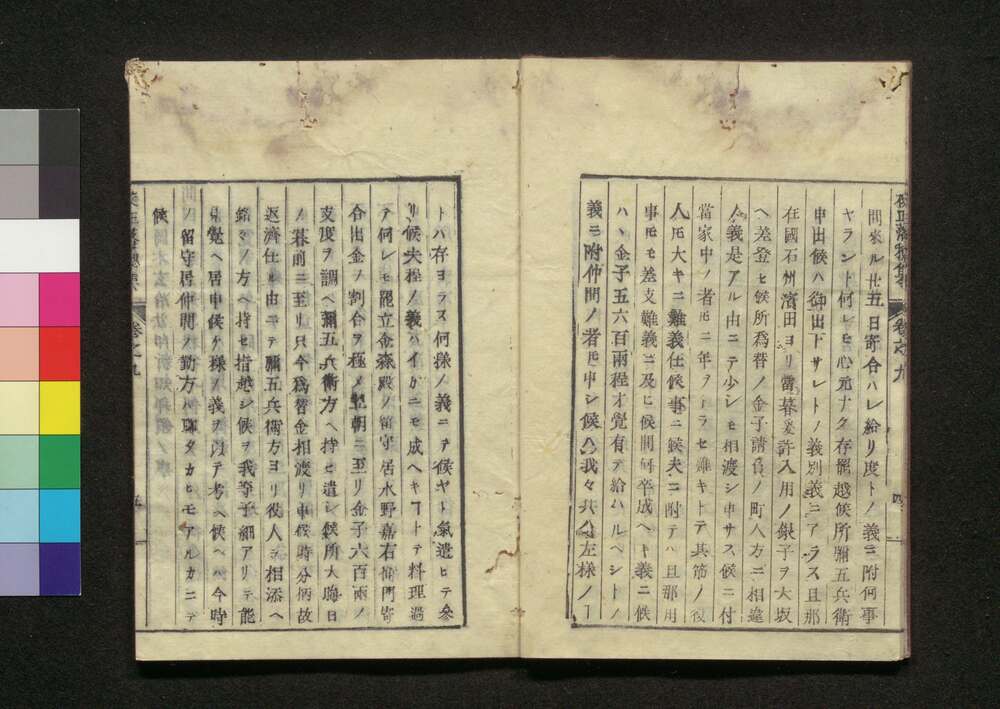 間來ル廿五日寄合ハレ給リ度トノ義ニ附何事
ヤラント何レモ心元ナク存罷越候所彌五兵衛
申出候ハ御出下サレトノ義別義ニアラス且那
在國石州濱田ヨリ當暮爰許入用ノ銀子ヲ大坂
へ差登セ候所爲替ノ金子請負ノ町人方ニ相違
ノ義是アル由ニテ少シモ相渡シ申サス候ニ付
當家中ノ者𪜈ニ年ヲトラセ難キトテ其筋ノ役
人𪜈大キニ難義仕候事ニ候夫ニ附テハ且那用
事𪜈モ差支難義ニ及ヒ候間何卒成ヘキ義ニ候
ハヽ金子五六百兩程才覺有テ給ハルヘシトノ
義ニ附仲間ノ者𪜈申シ候ハ我々共左様ノヿ
トハ存ヨラス何様ノ義ニテ候ヤト氣遣ヒテ參
リ候夫程ノ義ハイカニモ成ヘキヿトテ料理過
テ何レモ罷立金森殿ノ留守居水野嘉右衛門寄
合出金ノ割合ヲ極メ翌朝ニ至リ金子六百兩ノ
支度ヲ調ヘ彌五兵衛方ヘ持セ遣シ候所大晦日
ノ暮前ニ至リ只今爲替金相渡リ申候時分柄故
返濟仕ル由ニテ彌五兵衛方ヨリ役人ヲ相添ヘ
銘々ノ方ヘ持セ指越シ候ヲ我等子細アリテ能
覺ヘ居申候ケ様ノ義ヲ以テ考ヘ候ヘハ今時
ノ留守居仲間ノ勤方ハ聊タカヒモアルカニテ
候